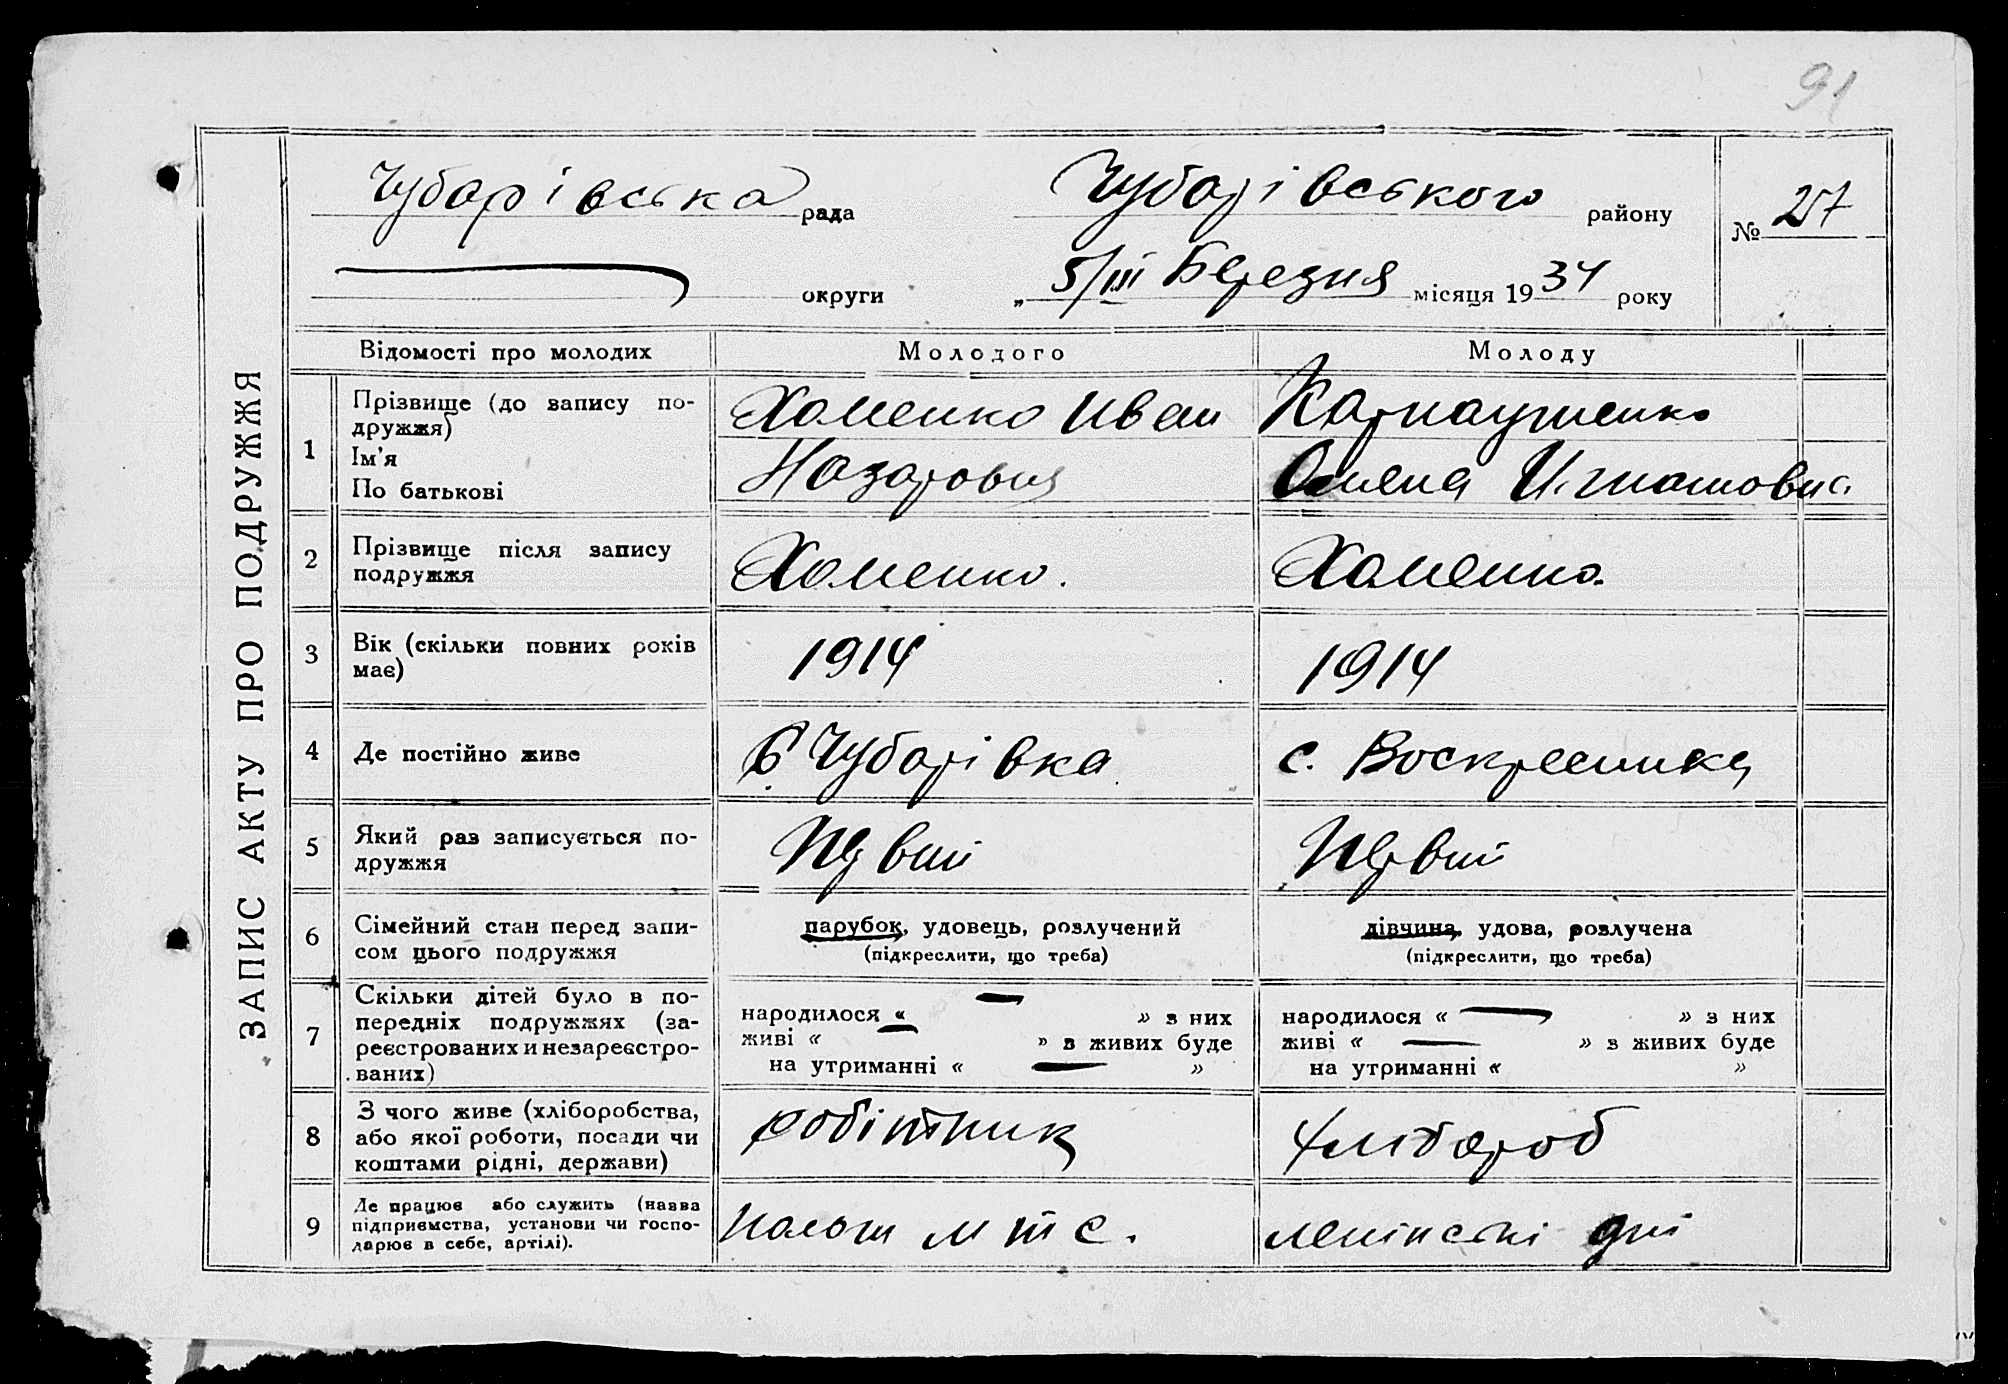 91
Чубарівська рада Чубарівського району № 27
округи „ 5/III Березня місяця 1934 року
ЗАПИС АКТУ ПРО ПОДРУЖЖЯ
Відомості про молодих Молодого Молоду
1 Прізвище (до запису по-
дружжя)
Ім'я
По батькові
Хоменко Иван
Назарович
Карнаушенко
Олена Игнатовна
2 Прізвище після запису
подружжя
Хоменко.
Хоменко.
3 Вік (скільки повних років
має)
1914
1914
4 Де постійно живе
с Чубарівка
с. Воскресенка
5 Який раз записується по-
дружжя
Первий
Первий
6 Сімейний стан перед запи-
сом цього подружжя
парубок, удовець, розлучений
(підкреслити, що треба)
дівчина, удова, розлучена
(підкреслити, що треба)
7 Скільки дітей було в по-
передніх подружжях (за-
реєстрованих и незареєстро-
ваних)
народилося « — » з них
живі « — » з живих буде
на утриманні « — »
народилося « — » з них
живі « — » з живих буде
на утриманні « »
8 З чого живе (хліборобства,
або якої роботи, посади чи
коштами рідні, держави)
робітник
хлібороб
9 Де працює або служить (назва
підприємства, установи чи госпо-
дарює в себе, артілі).
м т с.
ленінські дні